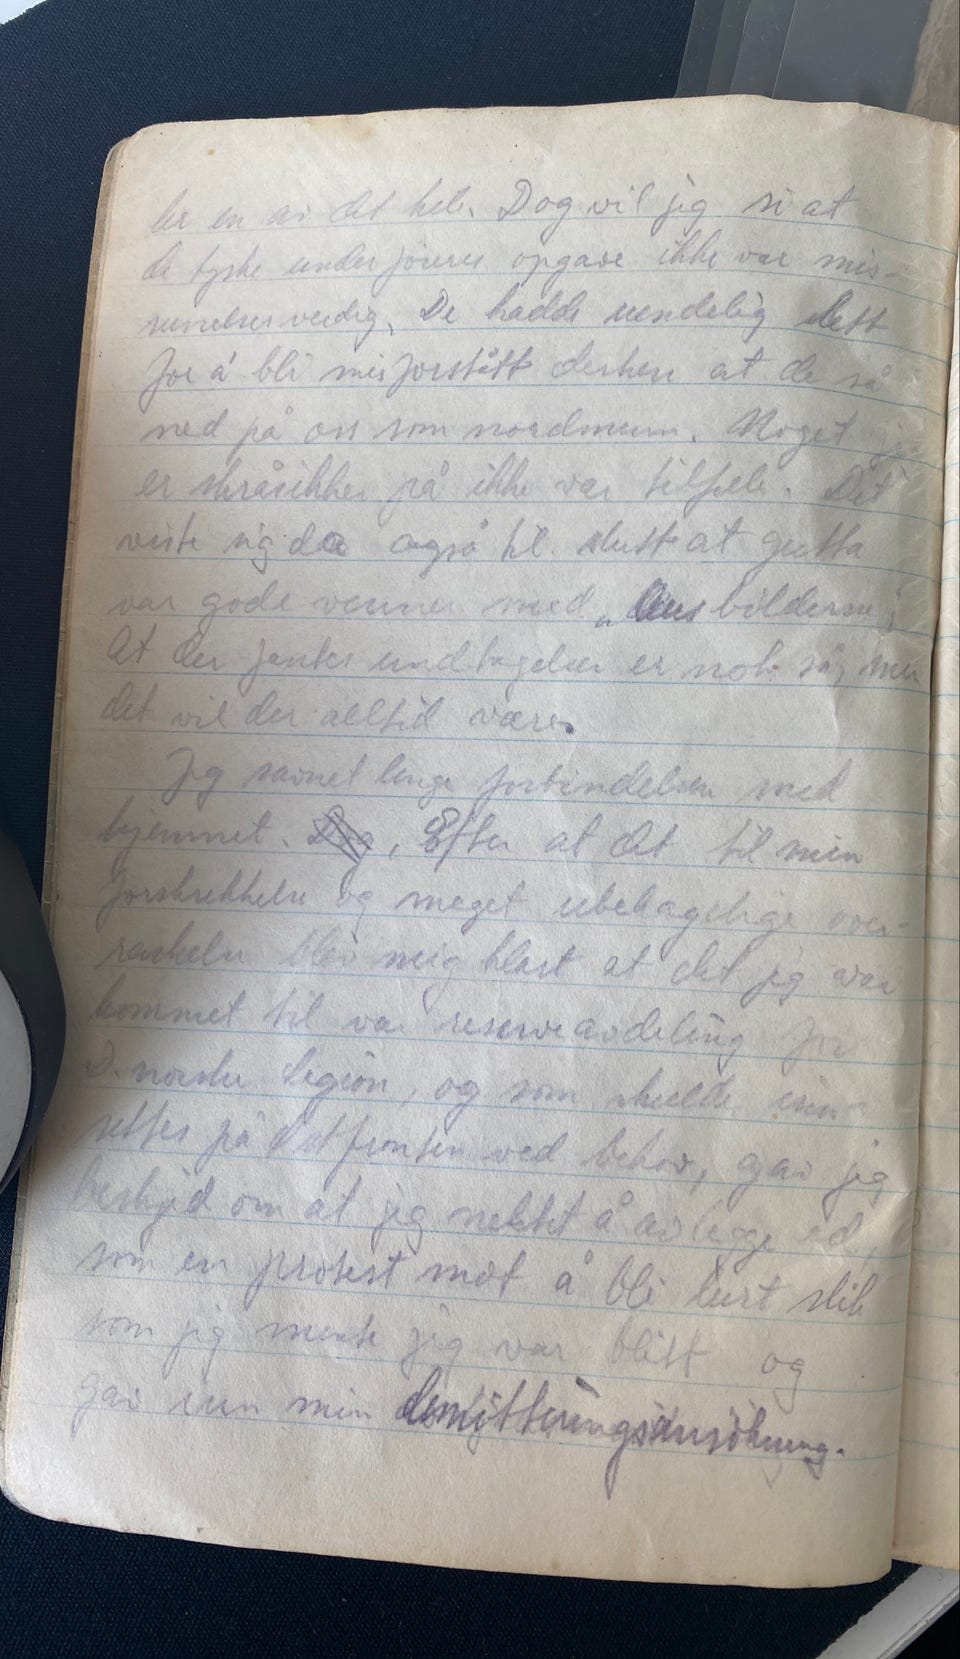 ler en av det hele. Dog vil jeg si at
de tyske underførerers opgave ikke var mis-
sunnelsesverdig. De hadde uendelig lett
for å bli misforstått derhen at de så
ned på oss som nordmenn. Noget jeg
er skråsikker på ikke var tilfele. Det
viste sig da også til slutt at gutta
var gode venner med „Ausbilderne".
At der fantes undtagelser er nok så, men
det vil der alltid være.
Jeg savnet lenge forbindelsen med
hjemmet. Dog, Efter at det til min
forskrekkelse og meget ubehagelige over-
raskelse blev mig klart at det jeg var
kommet til var reserveavdeling for
D. norske Legion, og som skulde inn-
settes på Østfronten ved behov, gav jeg
beskjed om at jeg nektet å avlegge ed,
som en protest mot å bli lurt slik
som jeg mente jeg var blitt og
gav inn min